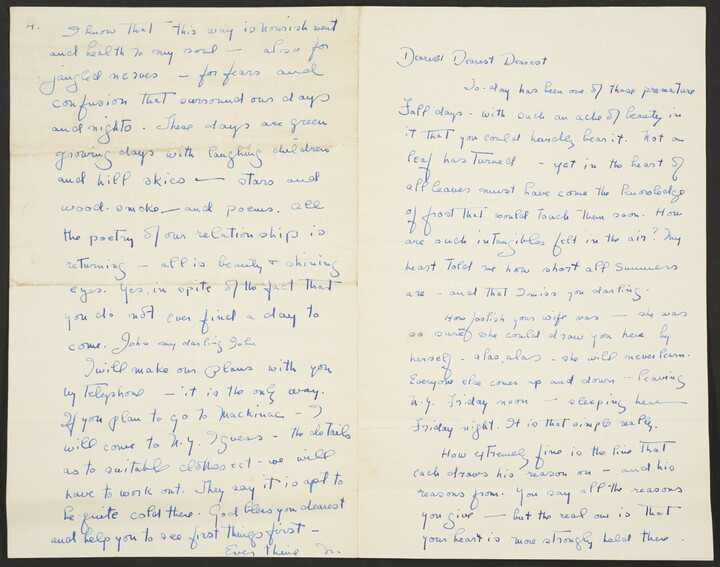 4.
I know that this way is nourishment
and health to my soul — also for
jangled nerves — for fears and
confusion that surround our days
and nights. These days are green
growing days with laughing children
and hill skies — stars and
wood-smoke — and poems. All
the poetry of our relationship is
returning — all is beauty & shining
eyes. Yes, in spite of the fact that
you do not ever find a day to
come. John my darling John
I will make our plans with you
by telephone — it is the only way.
If you plan to go to Mackinac — I
will come to N.Y. I guess - the details
as to suitable clothes ect - we will
have to work out. They say it is apt to
be quite cold there. God bless you dearest
and help you to see first things first —
Ever thine
Dearest Dearest Dearest
To-day has been one of those premature
Fall days - with such an ache of beauty in
it that you could hardly bear it. Not a
leaf has turned - yet in the heart of
all leaves must have come the knowledge
of frost that would touch them soon. How
are such intangibles felt in the air? My
heart told me how short all summers
are - and that I miss you darling.
How foolish your wife was — she was
so sure she could draw you here by
herself - alas, alas - she will never learn.
Everyone else comes up and down - leaving
N.Y. Friday noon — sleeping here
Friday night. It is that simple really.
How extremely fine is the line that
each draws his reason on — and his
reasons from. You say all the reasons
you give — but the real one is that
your heart is more strongly held there.